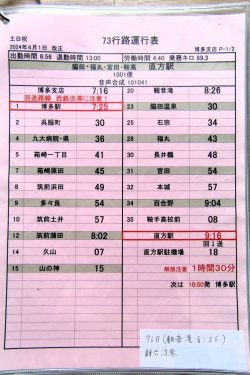 土日祝
73行路運行表
2024年4月1日 改正
博多支店 P-1/2
出勤時間 6:56 退勤時間 13:00
労働時間 4:40 乗務キロ 89.3
脇田・福丸・宮田・鞍高 直方駅
1001便
音声合成 101041
博多支店 7:16
回送路線 西鉄渋滞に注意!
1 博多駅 7:25
3 呉服町 30
4 九大病院・県 36
5 箱崎一丁目 41
7 箱崎原田 45
8 筑前浜田 49
9 多々良 54
10 筑前土井 57
12 筑前蒲田 8:02
14 久山 07
15 山の神 15
20 観音滝 8:26
23 脇田温泉 30
25 石宗 34
28 福丸 43
30 長井鶴 48
31 宮田 54
32 本城 57
34 百合野 9:04
35 鞍手高校前 08
直方駅 9:16
回↓送
直方駅駐機場 18
解放注意 1時間30分
次は 10:50発 博多駅